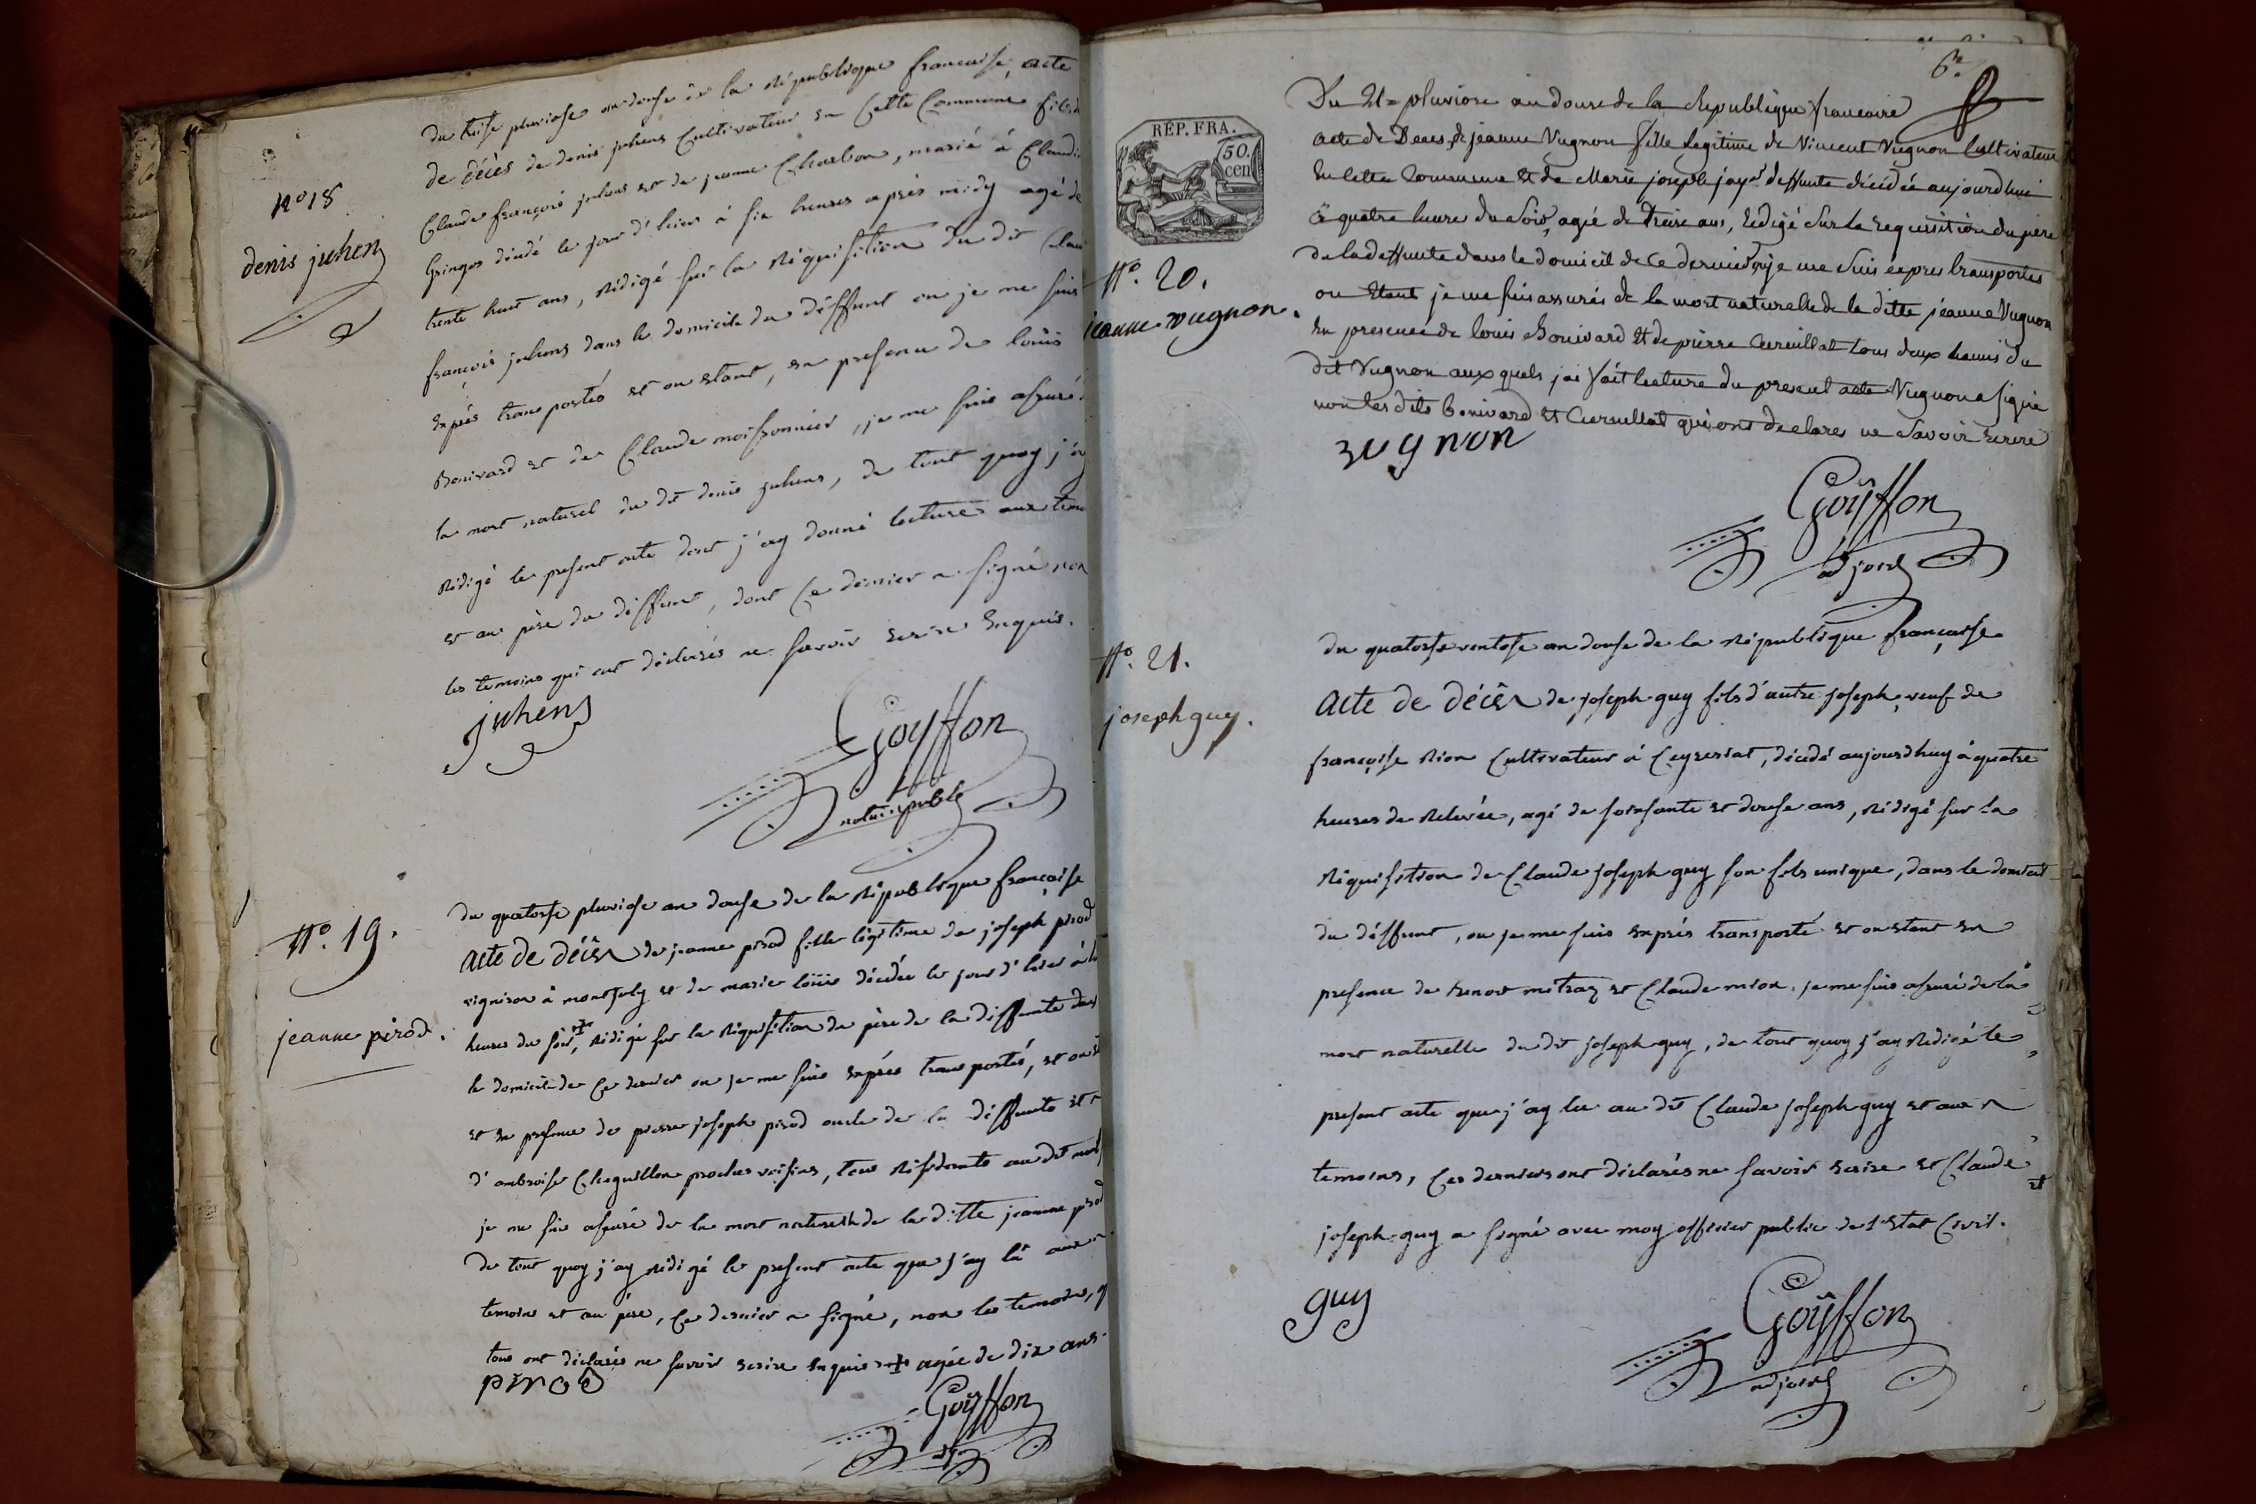 du treise pluviose an douse de la République francaise, acte
de décès de denis juhens Cultivateur en Cette Commune fils de
Claude françois juhens et de jeanne Charbon, marié à Claudi
Gringoz décédé le jour d'hier à six heures après midy agé de
trente huit ans, Rédigé sur la Réquisition du dit Clau
françois juhens dans le domicile du deffunt ou je me suis
exprès transportés et ou etant, en presence de louis
Bonivard et de Claude moissonnier, je me suis assuré
la mort naturel du dit denis juhens, de tout quoy j'ay
Rédigé le present acte dont j'ay donné lecture aux temo
et au père du deffunt, dont Ce dernier a signé non
les temoins qui ont déclarés ne savoir ecrire Enquis.
juhens
Goyffon
N° 18
denis juhen
N°. 19.
jeanne pirod.
du quatorse pluviose an douse de la République française
acte de décès de jeanne pirod fille légitime de joseph pirod
vigneron à montjuly et de marie décédée le jour d'hier à
heures du soir, + Rédigé sur la Réquisition du père de la deffunte dans
le domicile de Ce dernier ou je me suis exprès transportés, et ou et
et en presence de pierre joseph pirod oncle de la deffunte et
d'ambroise Cheguillon proches voisins, tous Résidents au dit mont
je me suis assuré de la mort naturelle de la ditte jeanne pirod
de tout quoy j'ay Rédigé le present acte que j'ay lû aux
temoins et au père, Ce dernier a signé, non les temoins, q
tous ont déclarés ne savoir ecrire enquis + agée de dix ans.
pirod
Goÿffon
6e
RÉP. FRA.
50.
cen
Du 21= pluviose an douse de la Republique francaise
acte de Deces de jeanne Vugnon fille legitime de Vincent Vugnon Cultivateur
En Cette Commune et de Marie joseph deffunte décédée aujourdhui
à quatre heure du Soir, agée de treise ans, Rédigé Sur la requisition du père
de la deffunte dans le domicil de Ce dernier ou je me Suis expres transportés
ou Etant je me suis assurés de la mort naturelle de la ditte jeanne Vugnon
En presence de louis Bonivard et de pierre Cureuillat tous deux du
dit Vugnon auxquels jai fait lecture du present acte Vugnon a signé
non les dits Bonivard et Cureuillat qui ont declarés ne Savoir Ecrire
vugnon
Goÿffon
adjoint
N°. 20.
jeanne vugnon.
N°. 21.
joseph guy.
du quatorse ventose an douse de la République française
acte de décès de joseph guy fils d'autre joseph, veuf de
françoise Rion Cultivateur à Ceyseriat, décédé aujourdhuy à quatre
heures de Relevée, agé de soixante et douse ans, Rédigé sur la
Réquisition de Claude joseph guy son fils unique, dans le domicil
du deffunt, ou je me suis exprès transporté et ou etant en
presence de benoit mitraz et Claude mion, je me suis assuré de la
mort naturelle du dit joseph guy, de tout quoy j'ay Redigé le
present acte que j'ay lu au dit Claude joseph guy et aux
temoins, Ces derniers ont déclarés ne savoir ecrire et Claude
joseph guy a signé avec moy officier public de l'etat Civil.
guy
Goÿffon
adjoint